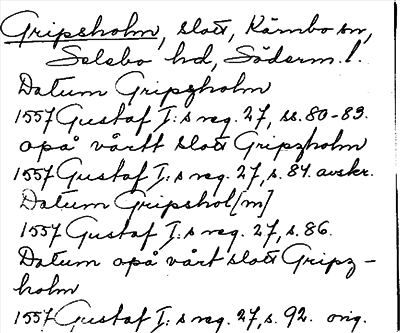 Gripsholm, slott, Kärnbo sn,
Selebo hd, Söderm. l.
Datum Gripzholm
1557 Gustaf I:s reg. 27, ss. 80-83.
opå vårtt slott Gripzholm
1557 Gustaf I:s reg. 27, s. 84. avskr.
Datum Gripshol[m]
1557 Gustaf I:s reg. 27, s. 86.
Datum opå vårt slott Gripz-
holm
1557 Gustaf I:s reg. 27, s. 92. orig.